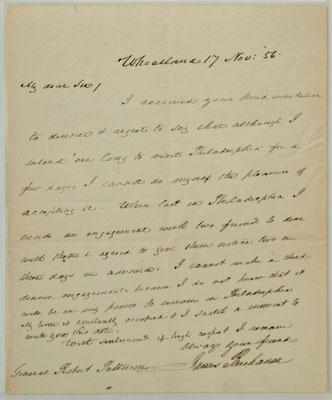 Wheatland 17 Nov: 56.
My dear Sir/
I received your kind invitation
to dinner & regret to say that although I
intend 'ere long to visit Philadelphia for a
few days I cannot do myself the pleasure of
accepting it. When last in Philadelphia I
made an engagement with two friends to dine
with them & agreed to give them notice two or
three days in advance. I cannot make a third
dinner engagement because I do not know that it
will be in my power to remain in Philadelphia
My time is constantly occupied & I snatch a moment to
write you this note.
With sentiments of high respect I remain
always your friend
General Robert Patterson James Buchanan